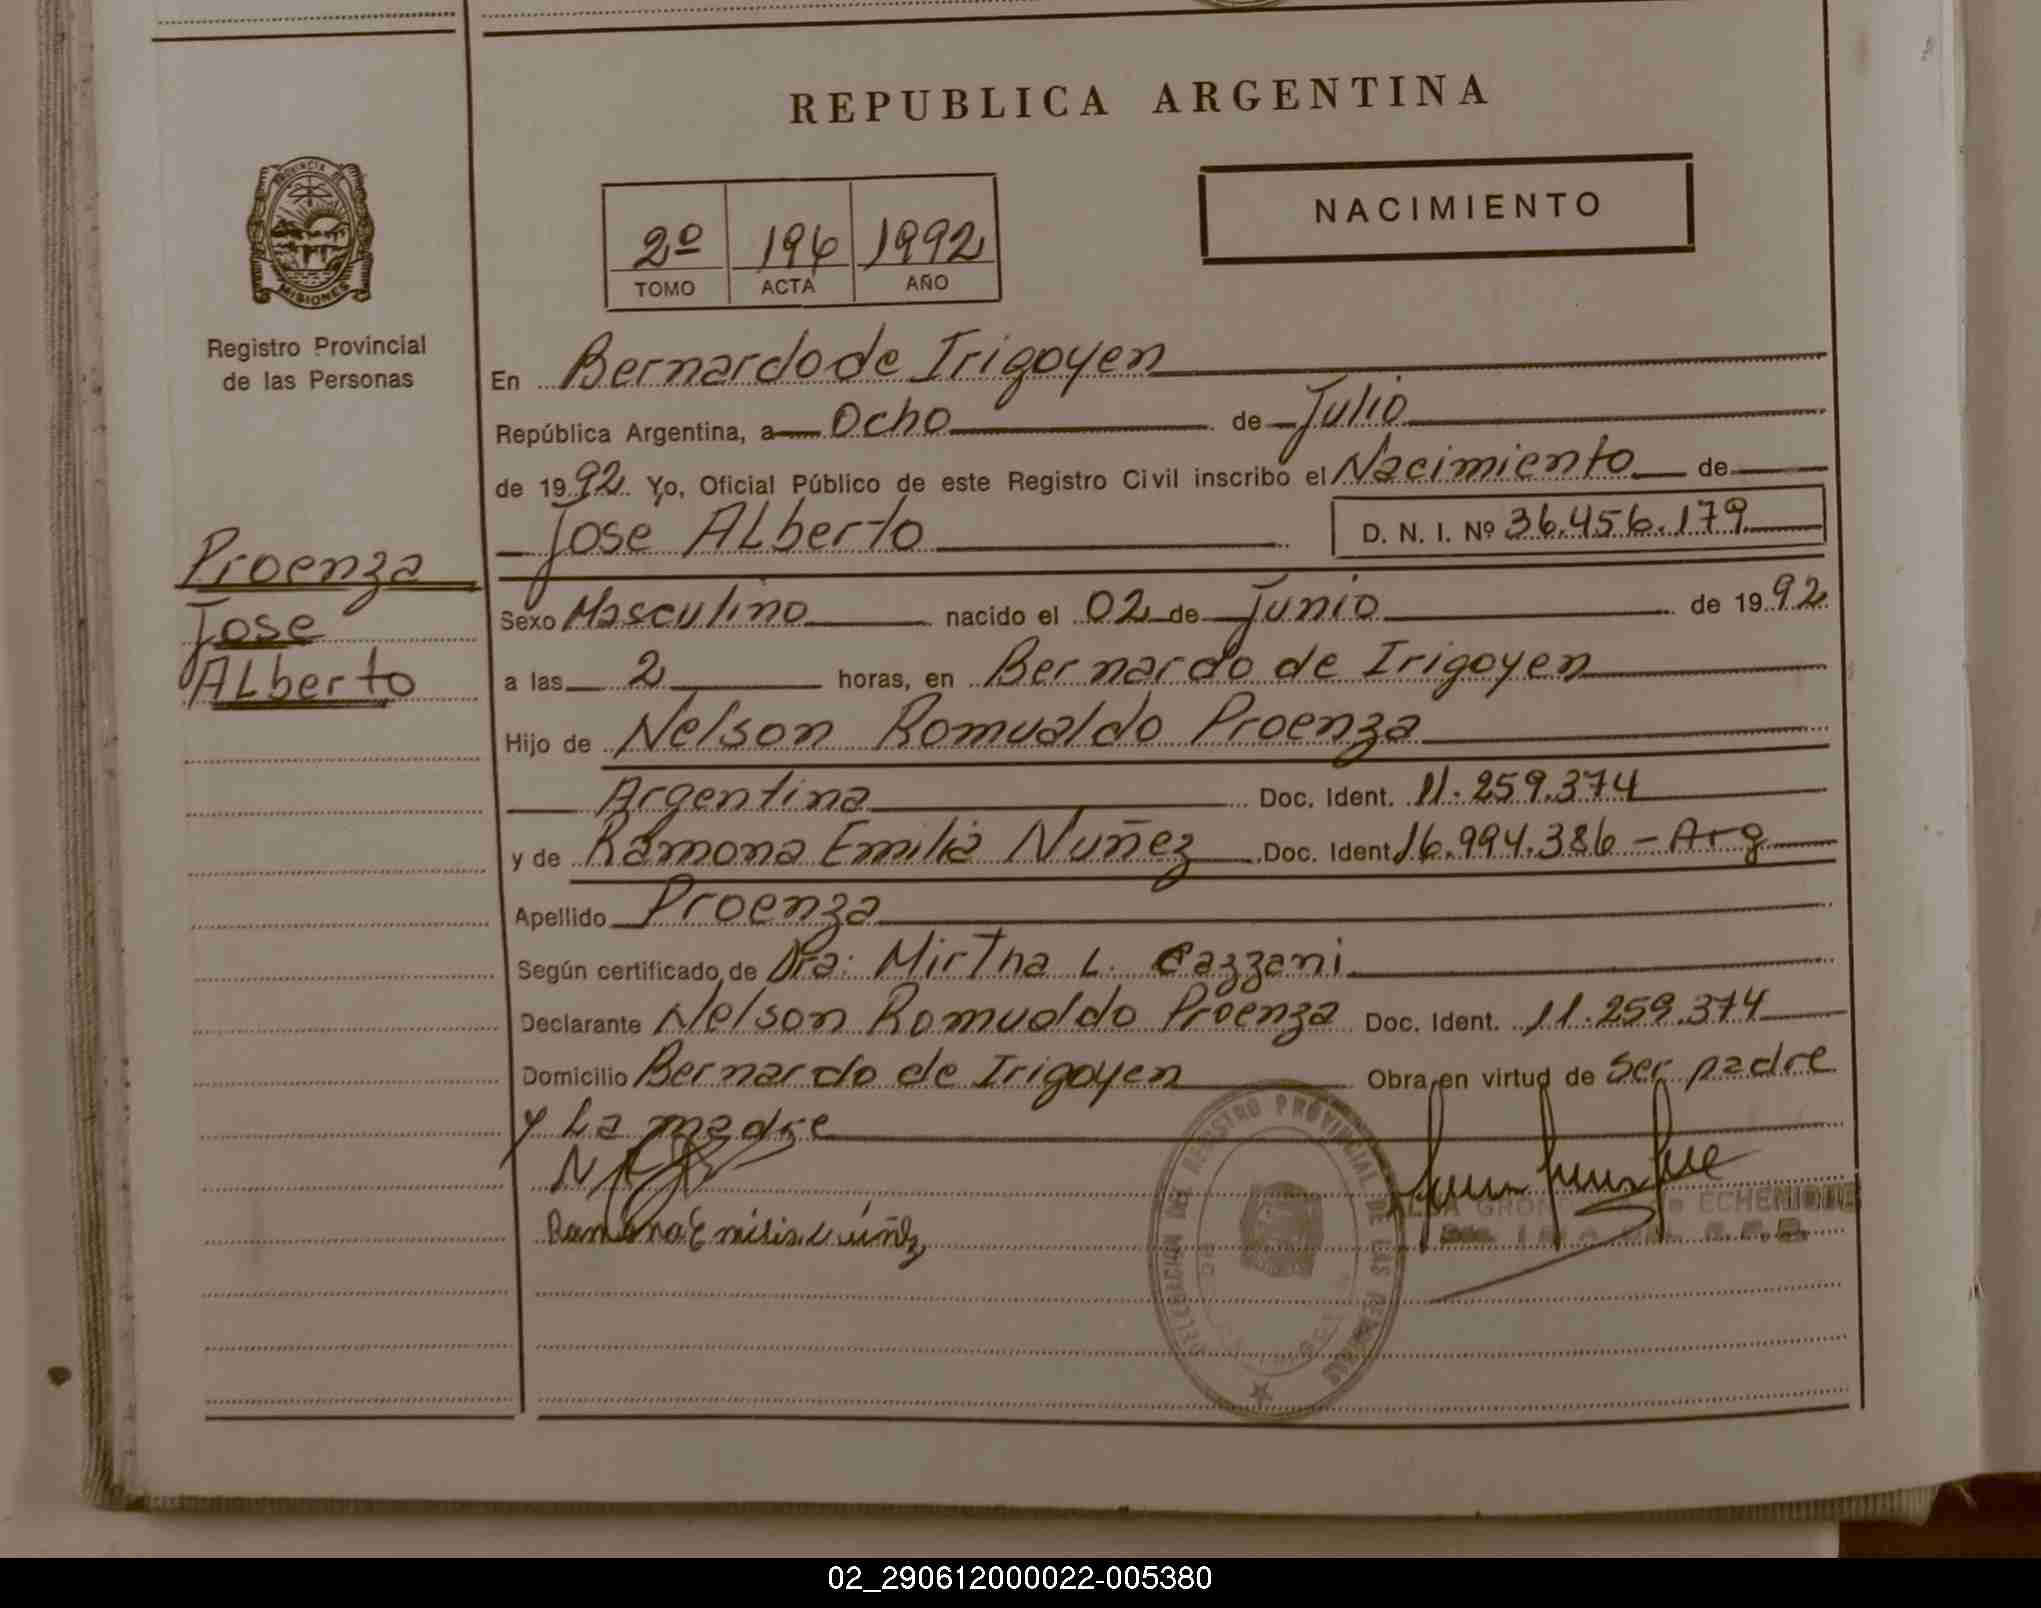 REPUBLICA ARGENTINA
PROVINCIA DE
MISIONES
Registro Provincial
de las Personas
NACIMIENTO
2º 196 1992
TOMO ACTA AÑO
En Bernardo de Irigoyen
República Argentina, a Ocho de Julio
de 1992 Yo, Oficial Público de este Registro Civil inscribo el Nacimiento de
Jose ALberto D. N. I. Nº 36.456.179
Proenza
Jose
ALberto
Sexo Masculino nacido el 02 de Junio de 1992
a las 2 horas, en Bernardo de Irigoyen
Hijo de Nelson Romualdo Proenza
Argentina Doc. Ident. 11.259.374
y de Ramona Emilia Nuñez Doc. Ident. 16.994.386 - Arg
Apellido Proenza
Según certificado de Dra: Mirtha L. Cazzani
Declarante Nelson Romualdo Proenza Doc. Ident. 11.259.374
Domicilio Bernardo de Irigoyen Obra en virtud de Ser padre
y La madre
Ramona Emilia Nuñez
DELEGACION DEL REGISTRO PROVINCIAL DE LAS PERSONAS
ECHENIQUE
02_290612000022-005380